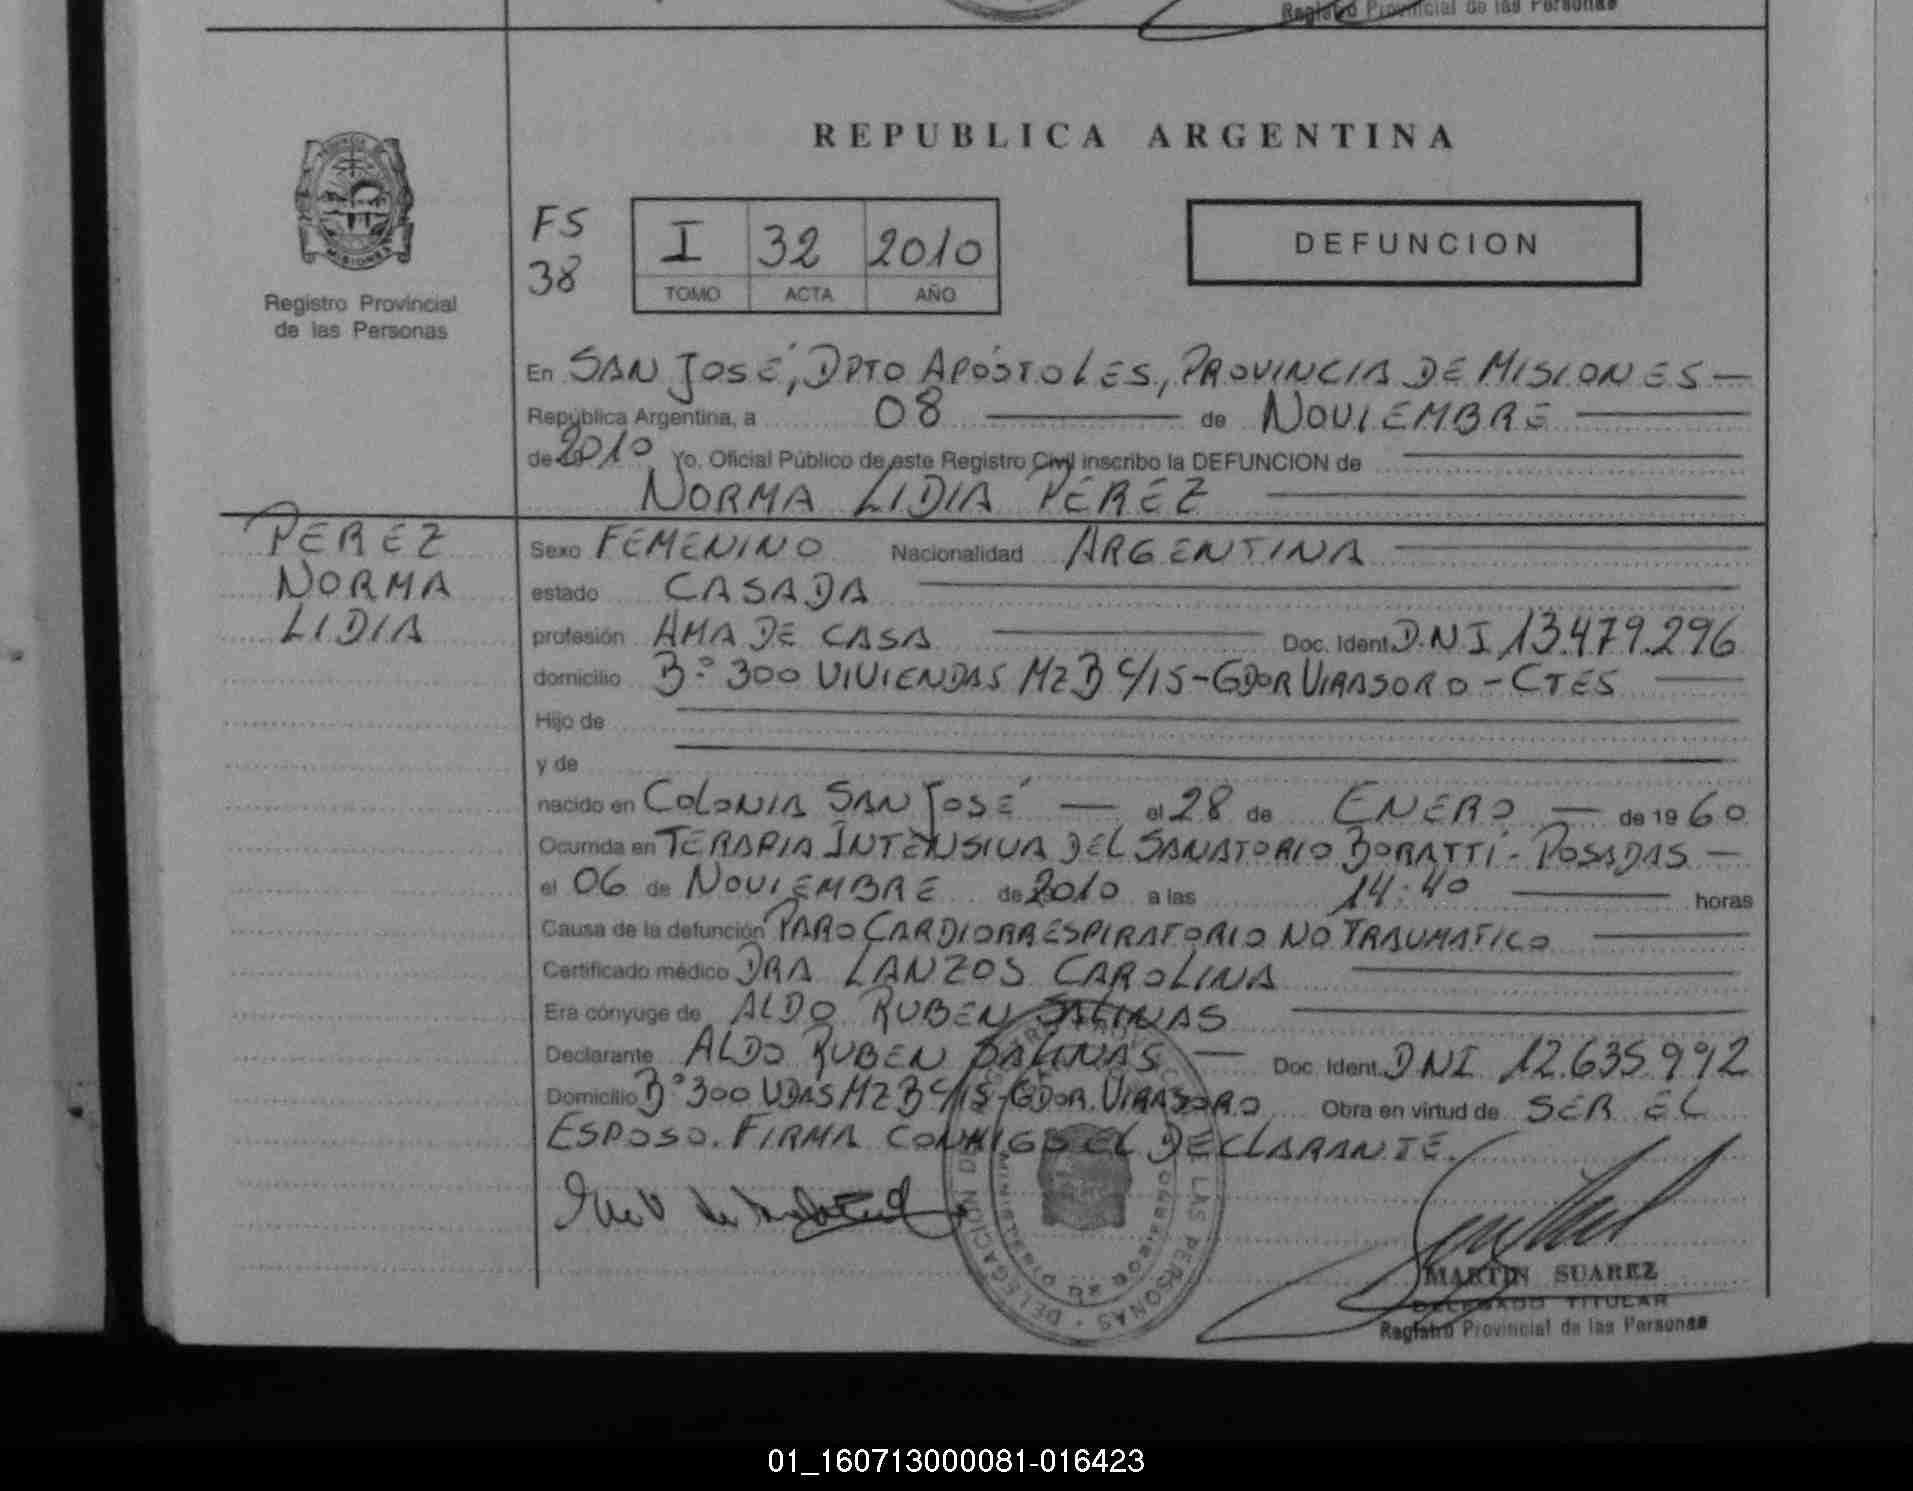 Registro Provincial de las Personas
REPUBLICA ARGENTINA
MISIONES
Registro Provincial
de las Personas
FS
38
I 32 2010
TOMO ACTA AÑO
DEFUNCION
En SAN JOSÉ, DPTO APÓSTOLES, PROVINCIA DE MISIONES —
República Argentina, a 08 — de NOVIEMBRE —
de 2010 Yo, Oficial Público de este Registro Civil inscribo la DEFUNCION de —
NORMA LIDIA PEREZ —
PEREZ
NORMA
LIDIA
Sexo FEMENINO Nacionalidad ARGENTINA —
estado CASADA —
profesión AMA DE CASA — Doc. Ident. D.N.I 13.479.296
domicilio B° 300 VIVIENDAS MZ B C/15 - GDOR VIRASORO - CTES —
Hijo de —
y de —
nacido en COLONIA SAN JOSÉ — el 28 de ENERO — de 1960
Ocurrida en TERAPIA INTENSIVA DEL SANATORIO BORATTI - POSADAS —
el 06 de NOVIEMBRE de 2010 a las 14:40 — horas
Causa de la defunción PARO CARDIORRESPIRATORIO NO TRAUMATICO —
Certificado médico DRA LANZOS CAROLINA —
Era cónyuge de ALDO RUBEN SALINAS —
Declarante ALDO RUBEN SALINAS — Doc. Ident. DNI 12.635.992
Domicilio B° 300 VDAS MZ B C/15 - GDOR. VIRASORO Obra en virtud de SER EL
ESPOSO. FIRMA CONMIGO EL DECLARANTE.
MARTIN SUAREZ
DELEGADO TITULAR
Registro Provincial de las Personas
01_160713000081-016423